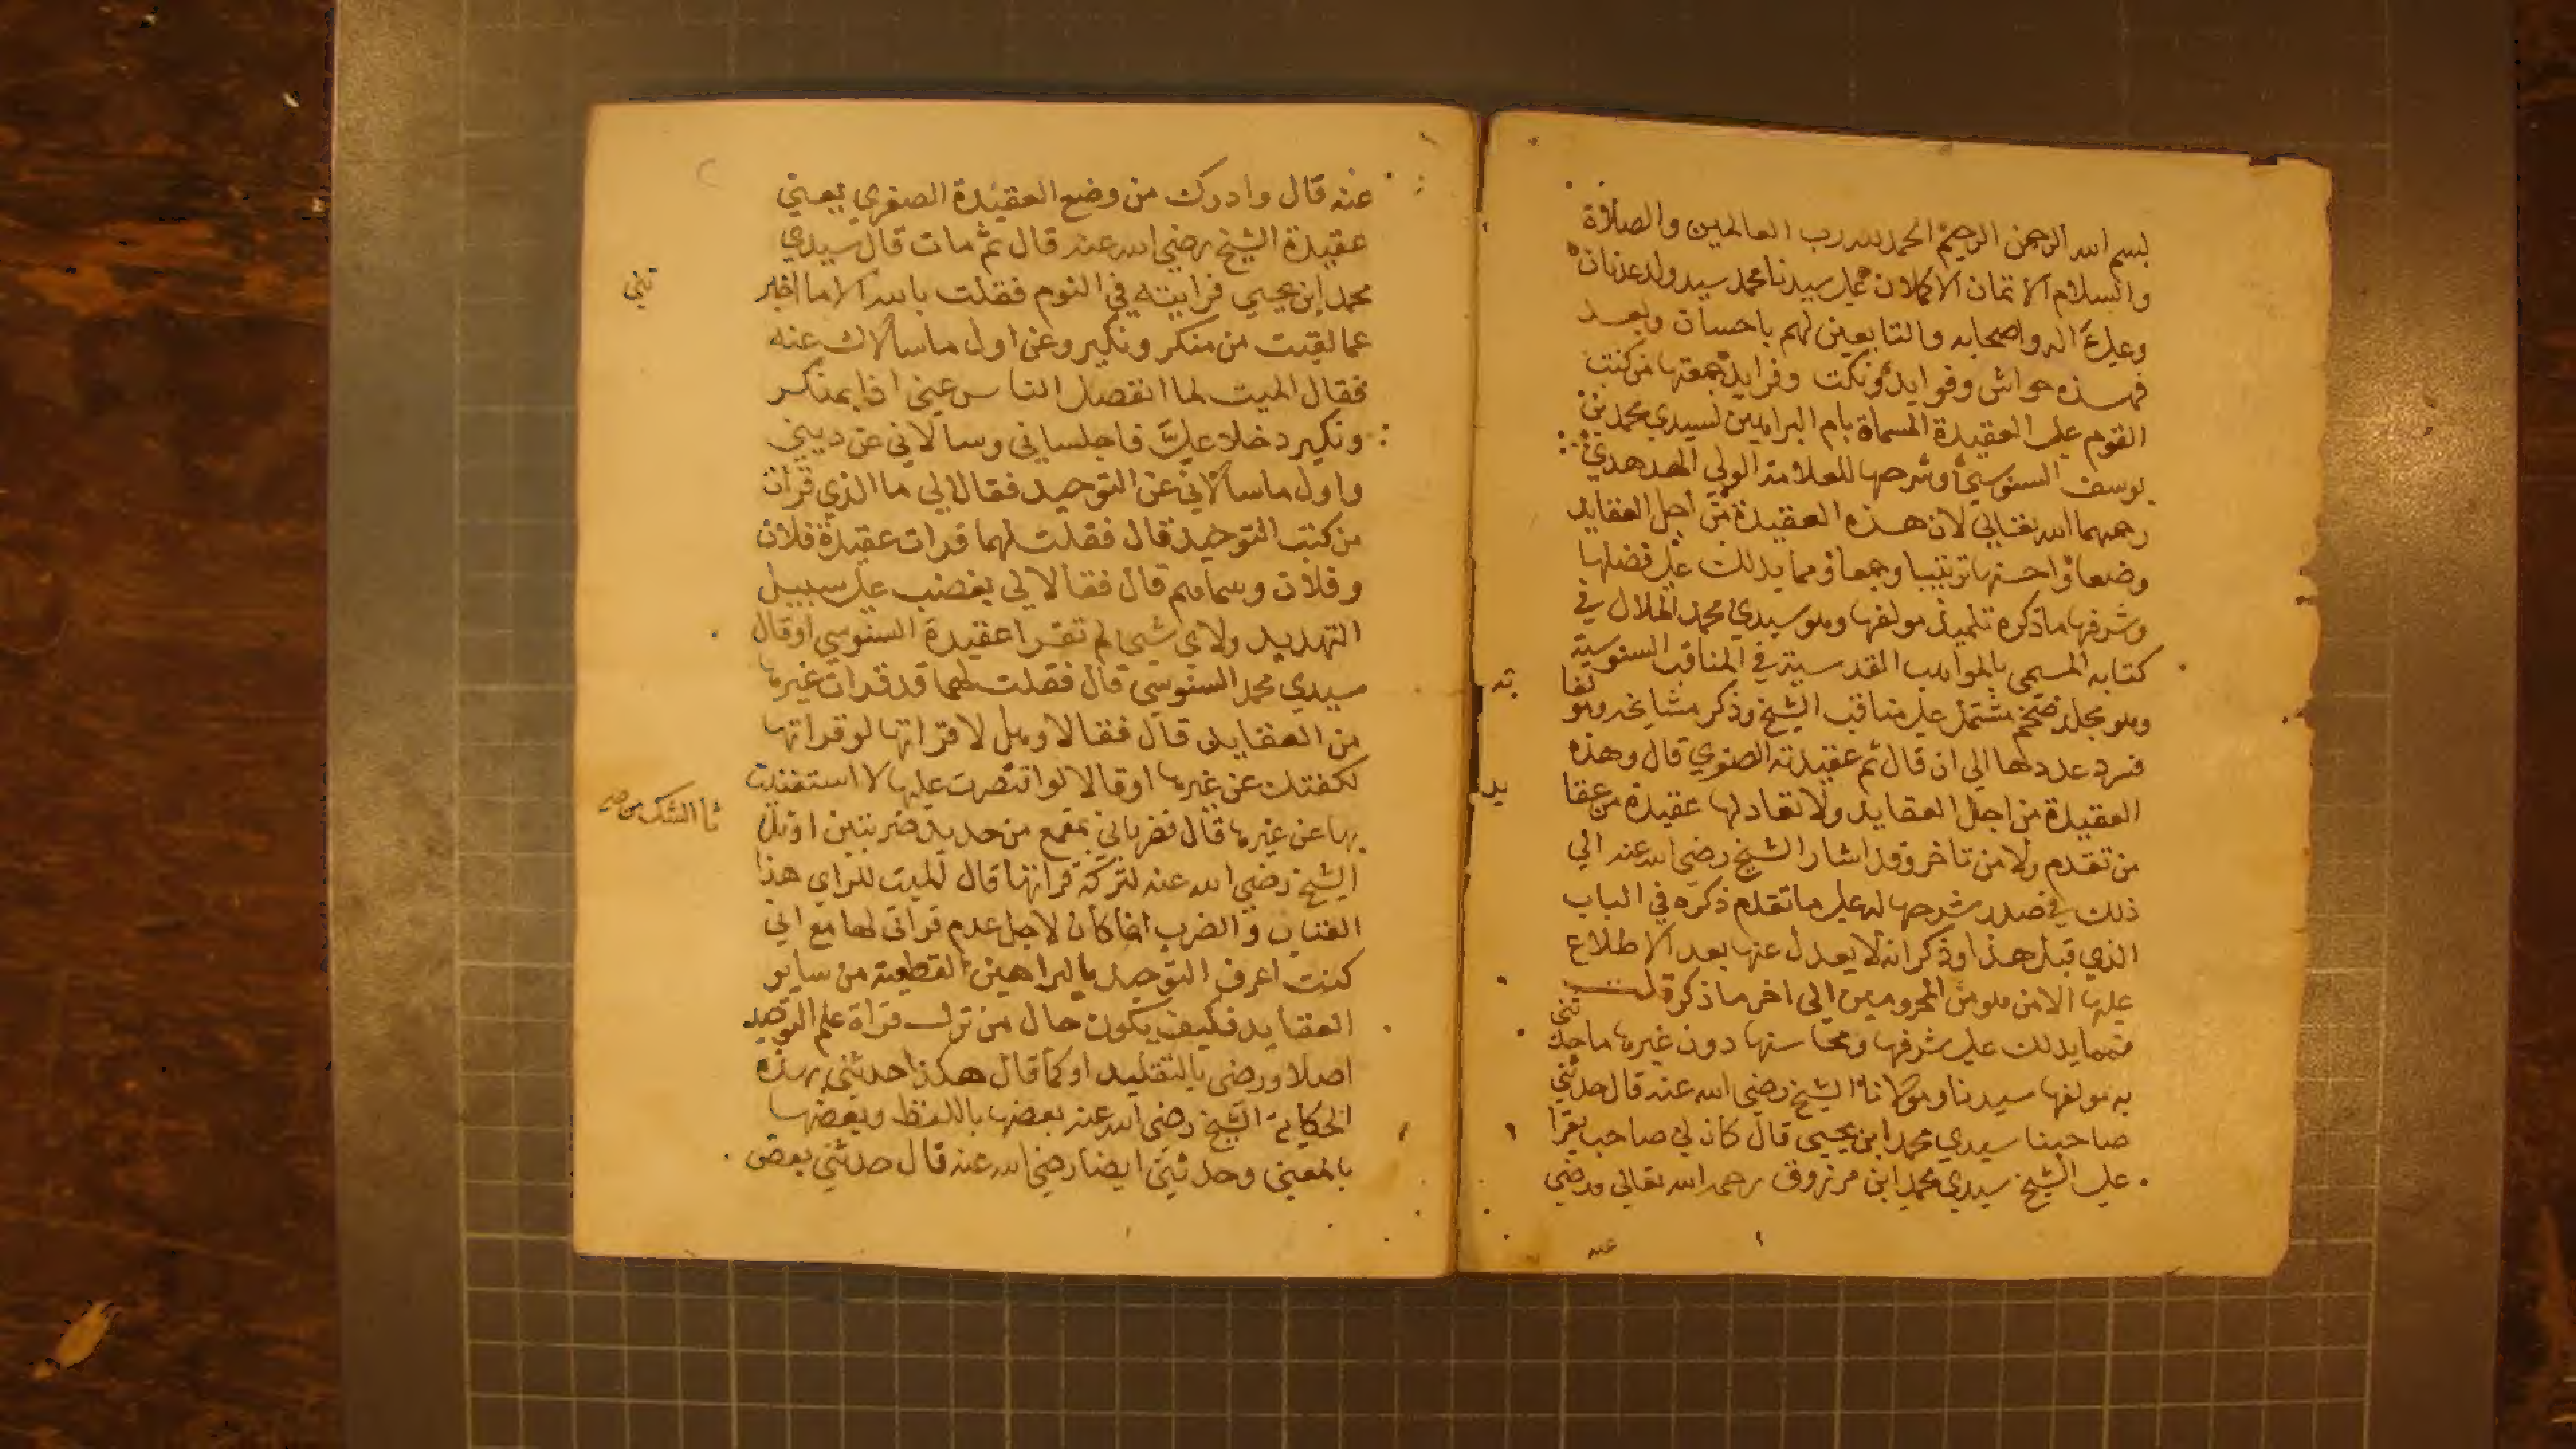 بسم الله الرحمن الرحيم الحمد لله رب العالمين والصلاة
والسلام الاتمان الاكملان على سيدنا محمد سيد ولد عدنان
وعلى اله واصحابه والتابعين لهم باحسان وبعد
فهذه حواش وفوايد ونكت وفرايد جمعتها من كتب
القوم على العقيدة المسماة بام البراهين لسيدي محمد بن
يوسف السنوسي وشرحها للعلامة الولي الهدهدي
رحمهما الله تعالى لان هذه العقيدة من اجل العقايد
وضعا واحسنها ترتيبا وجمعا ومما يدلك على فضلها
وشرفها ماذكره تلميذ مولفها وهو سيدي محمد الملال في
كتابه المسمى بالمواهب القدسية في المناقب السنوسية
وهو مجلد ضخم مشتمل على مناقب الشيخ وذكر مشايخه وهو
فسرد عددها الى ان قال ثم عقيدته الصغري قال وهذه
العقيدة من اجل العقايد ولا تعادلها عقيدة من عقا
يد
من تقدم ولا من تاخر وقد اشار الشيخ رضي الله عنه الي
ذلك في صدر شرحها له على ما تقدم ذكره في الباب
الذي قبل هذا وذكر انه لا يعدل عنها بعد الاطلاع
عليها الا من هو من المحرومين الى اخر ما ذكر قلت
فمما يدلك على شرفها ومحاسنها دون غيرها ما حد
ثني
به مولفها سيدنا ومولانا الشيخ رضي الله عنه قال حدثني
صاحبنا سيدي محمد ابن يحيى قال كان لي صاحب يقرا
على الشيخ سيدي محمد ابن مرزوق رحمه الله تعالى ورضي
عنه
عنه قال وادرك من وضع العقيدة الصغري يعني
عقيدة الشيخ رضي الله عنه قال ثم مات قال سيدي
محمد ابن يحيي فرايته في النوم فقلت بالله الا ما اخبر
تني
عما لقيت من منكر ونكير وعن اول ما سالاك عنه
فقال الميت لما انفصل الناس عني اذا بمنكر
ونكير دخلا علي فاجلساني وسالاني عن ديني
واول ما سالاني عن التوحيد فقالا لي ما الذي قرات
من كتب التوحيد قال فقلت لهما قرات عقيدة فلان
وفلان وسماهم قال فقالا لي بغضب على سبيل
التهديد ولاي شيء لم تقرا عقيدة السنوسي او قال
سيدي محمد السنوسي قال فقلت لهما قد قرات غيرها
من العقايد قال فقالا وهل لا قراتها لو قراتها
لكفتك عن غيرها او قالا لو اقتصرت عليها لا استغنيت
بها عن غيرها قال فضرباني بمقمع من حديد ضربتين او ثلا
ثا الشك من
الشيخ رضي الله عنه لتركه قراتها قال الميت للراي هذا
العتاب والضرب انما كان لاجل عدم قراتي لها مع اني
كنت اعرف التوحيد بالبراهين القطعية من ساير
العقايد فكيف يكون حال من ترك قراة علم التوحيد
اصلا ورضي بالتقليد او كما قال هكذا حدثني بهذه
الحكاية الشيخ رضي الله عنه بعضها باللفظ وبعضها
بالمعنى وحدثني ايضا رضي الله عنه قال حدثني بعض